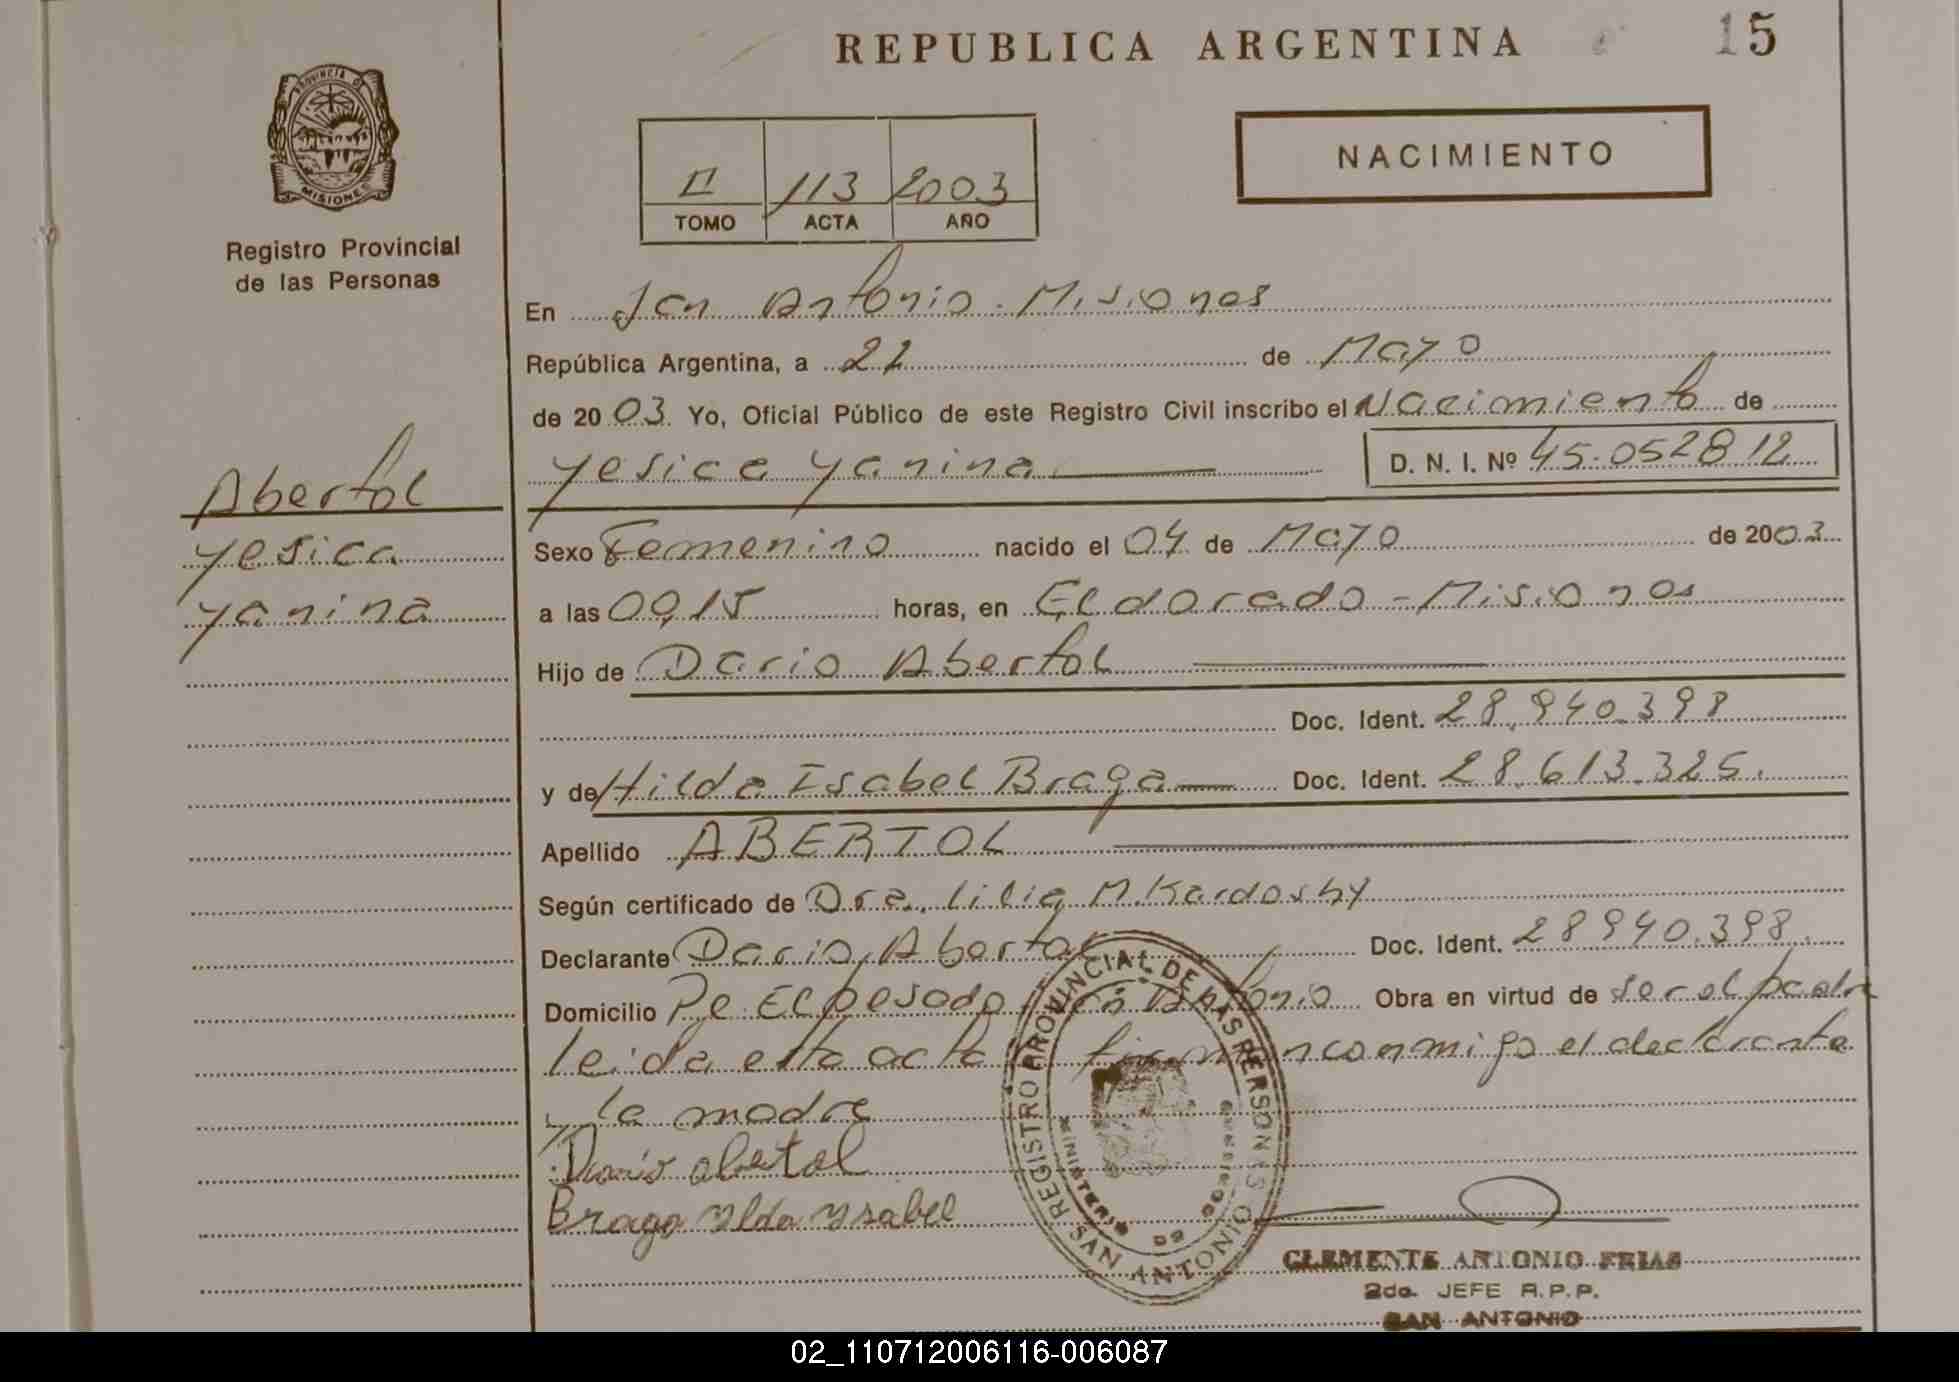 REPUBLICA ARGENTINA
15
PROVINCIA DE
MISIONES
Registro Provincial
de las Personas
II 113 2003
TOMO ACTA AÑO
NACIMIENTO
En San Antonio - Misiones
República Argentina, a 22 de Mayo
de 2003 Yo, Oficial Público de este Registro Civil inscribo el Nacimiento de
Yesica Yanina D. N. I. Nº 45.052812
Abertol
Yesica
Yanina
Sexo Femenino nacido el 04 de Mayo de 2003
a las 00,15 horas, en Eldorado - Misiones
Hijo de Dario Abertol
Doc. Ident. 28.940.398
y de Hilda Isabel Braga Doc. Ident. 28.613.325.
Apellido ABERTOL
Según certificado de Dra. Lilia M. Kardoshy
Declarante Dario Abertol Doc. Ident. 28940.398.
Domicilio Pe. El pesado San Antonio Obra en virtud de ser el padre
leida esta acta firman conmigo el declarante
y la madre
Dario abertol
Braga Ylda Ysabel
REGISTRO PROVINCIAL DE LAS PERSONAS
MINISTERIO DE GOBIERNO
SAN ANTONIO
CLEMENTE ANTONIO FRIAS
2do. JEFE R.P.P.
SAN ANTONIO
02_110712006116-006087